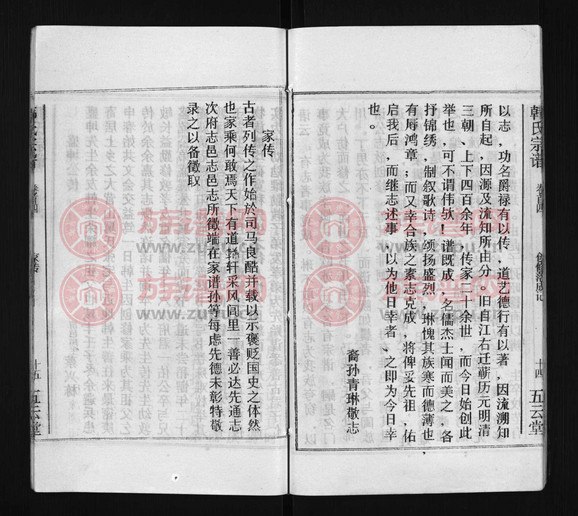 韩氏宗谱
卷首四
十四
五云堂
以志，功名爵禄有以传，道艺德行有以著，因流溯知
所自起，因源及流知所由分。旧自江右迁蕲历元明清
三朝、上下四百余年，传家三十余世，而今日始创此
举也，可不谓伟欤！谱既成，名儒杰士闻而美之，各
抒锦绣，制叙歌诗，颂扬盛烈，琳愧其族寒而德薄也
有辱鸿章；而又幸合族之素志克成，将俾妥先祖，佑
启我后，而继志述事，以为他日幸者、之即为今日幸
也。
裔孙青琳敬志
家传
古者列传之作始於司马良酷并载以示褒贬国史之体然
也家乘何敢焉天下有道輶轩采风闾里一善必达先通志
次府志邑志邑志所徵端在家谱孙等每虑先德未彰特敬
录之以备徵取
韩氏宗谱
卷首四
家传
十五
五云堂